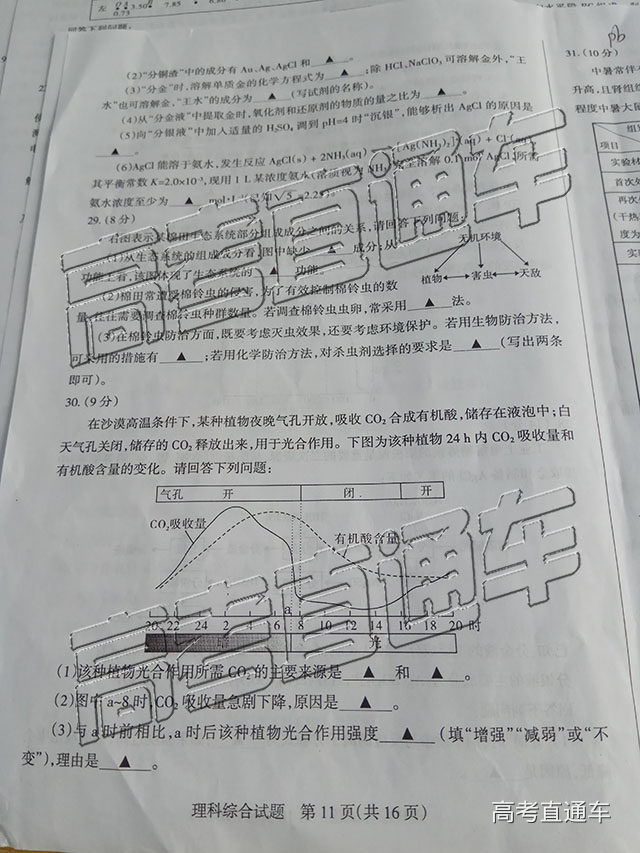 左
0.73
3.50
7.85
回答下列问题:
(2)“分铜渣”中的成分有 Au、Ag、AgCl 和 ▲ 。
(3)“分金”时,溶解单质金的化学方程式为 ▲ ;除 HCl、NaClO3 可溶解金外,“王
水”也可溶解金,“王水”的成分为 ▲ (写试剂的名称)。
(4)从“分金液”中提取金时,氧化剂和还原剂的物质的量之比为 ▲ 。
(5)向“分银液”中加入适量的 H2SO4 调到 pH=4 时“沉银”,能够析出 AgCl 的原因是
▲ 。
(6)AgCl 能溶于氨水,发生反应 AgCl(s) + 2NH3(aq) [Ag(NH3)2]+(aq) + Cl-(aq)
其平衡常数 K=2.0×10-3,现用 1 L 某浓度氨水(溶质视为 NH3)完全溶解 0.1 mol AgCl,所需
氨水浓度至少为 ▲ mol·L-1(已知√5 =2.25)。
29.(8 分)
右图表示某棉田生态系统部分组成成分之间的关系,请回答下列问题:
(1)从生态系统的组成成分看,图中缺少 ▲ 成分;从
功能上看,该图体现了生态系统的 ▲ 功能
(2)棉田常遭受棉铃虫的侵害,为了有效控制棉铃虫的数
量,往往需要调查棉铃虫种群数量。若调查棉铃虫虫卵,常采用 ▲ 法。
(3)在棉铃虫防治方面,既要考虑灭虫效果,还要考虑环境保护。若用生物防治方法,
可采用的措施有 ▲ ;若用化学防治方法,对杀虫剂选择的要求是 ▲ (写出两条
即可)。
无机环境
植物 害虫 天敌
30.(9 分)
在沙漠高温条件下,某种植物夜晚气孔开放,吸收 CO2 合成有机酸,储存在液泡中;白
天气孔关闭,储存的 CO2 释放出来,用于光合作用。下图为该种植物 24 h 内 CO2 吸收量和
有机酸含量的变化。请回答下列问题:
气孔 开 闭 开
CO2吸收量
有机酸含量
a
20 22 24 2 4 6 8 10 12 14 16 18 20 时
光
(1)该种植物光合作用所需 CO2 的主要来源是 ▲ 和 ▲ 。
(2)图中 a~8 时 CO2 吸收量急剧下降,原因是 ▲ 。
(3)与 a 时前相比,a 时后该种植物光合作用强度 ▲ (填“增强”“减弱”或“不
变”),理由是 ▲ 。
理科综合试题 第 11 页(共 16 页)
31.(10 分)
中暑常伴有
升高,且肾组织
程度中暑大鼠
项目
实验材
首次处
再次
(干热
度为
实
高考直通车
高考直通车
高考直通车